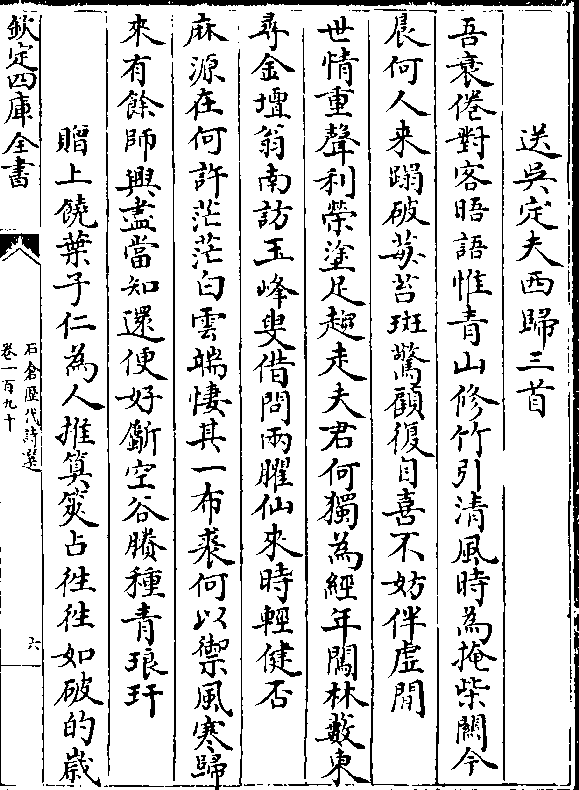 送吳定夫西歸三首
吾衰倦對客晤語惟青山修竹引清風時為掩柴關今
晨何人来蹋破莓苔斑驚顧復自喜不妨伴虛閒
世情重聲利榮塗足趨走夫君何獨為經年闖林藪東
尋金壇翁南訪玉峰叟借問兩臞仙來時輕健否
麻源在何許茫茫白雲端悽其一布裘何以禦風寒歸
來有餘師興盡當知還便好斸空谷賸種青琅玕
贈上饒葉子仁為人推算筴占徃徃如破的嵗
欽定四庫全書
石倉歷代詩選
卷一百九十
六